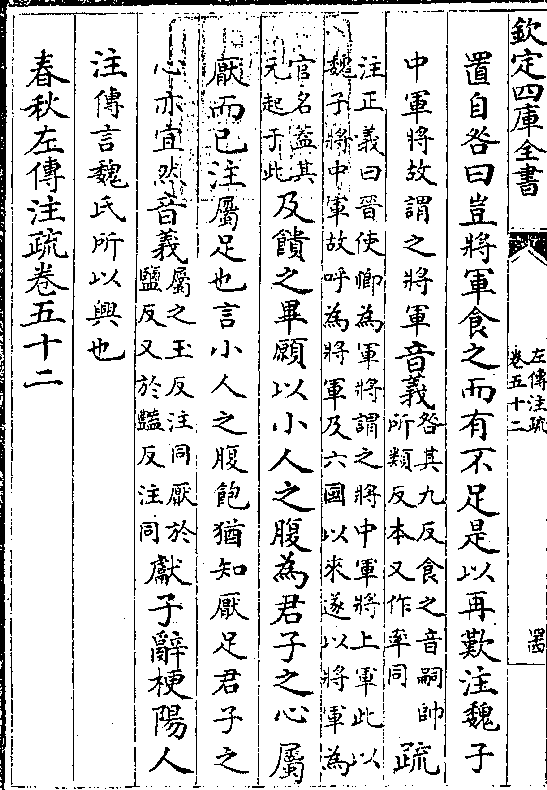 欽定四庫全書
左傳注疏
卷五十二
置自咎曰豈將軍食之而有不足是以再歎注魏子
中軍將故謂之將軍音義咎其九反食之音嗣帥
所類反本又作率同疏
注正義曰晉使卿為軍將謂之將中軍將上軍此以
魏子將中軍故呼為將軍及六國以來遂以將軍為
官名蓋其
元起于此及饋之畢願以小人之腹為君子之心屬
厭而已注屬足也言小人之腹飽猶知厭足君子之
心亦宜然音義屬之玉反注同厭於
鹽反又於豔反注同獻子辭梗陽人
注傳言魏氏所以興也
春秋左傳注疏卷五十二